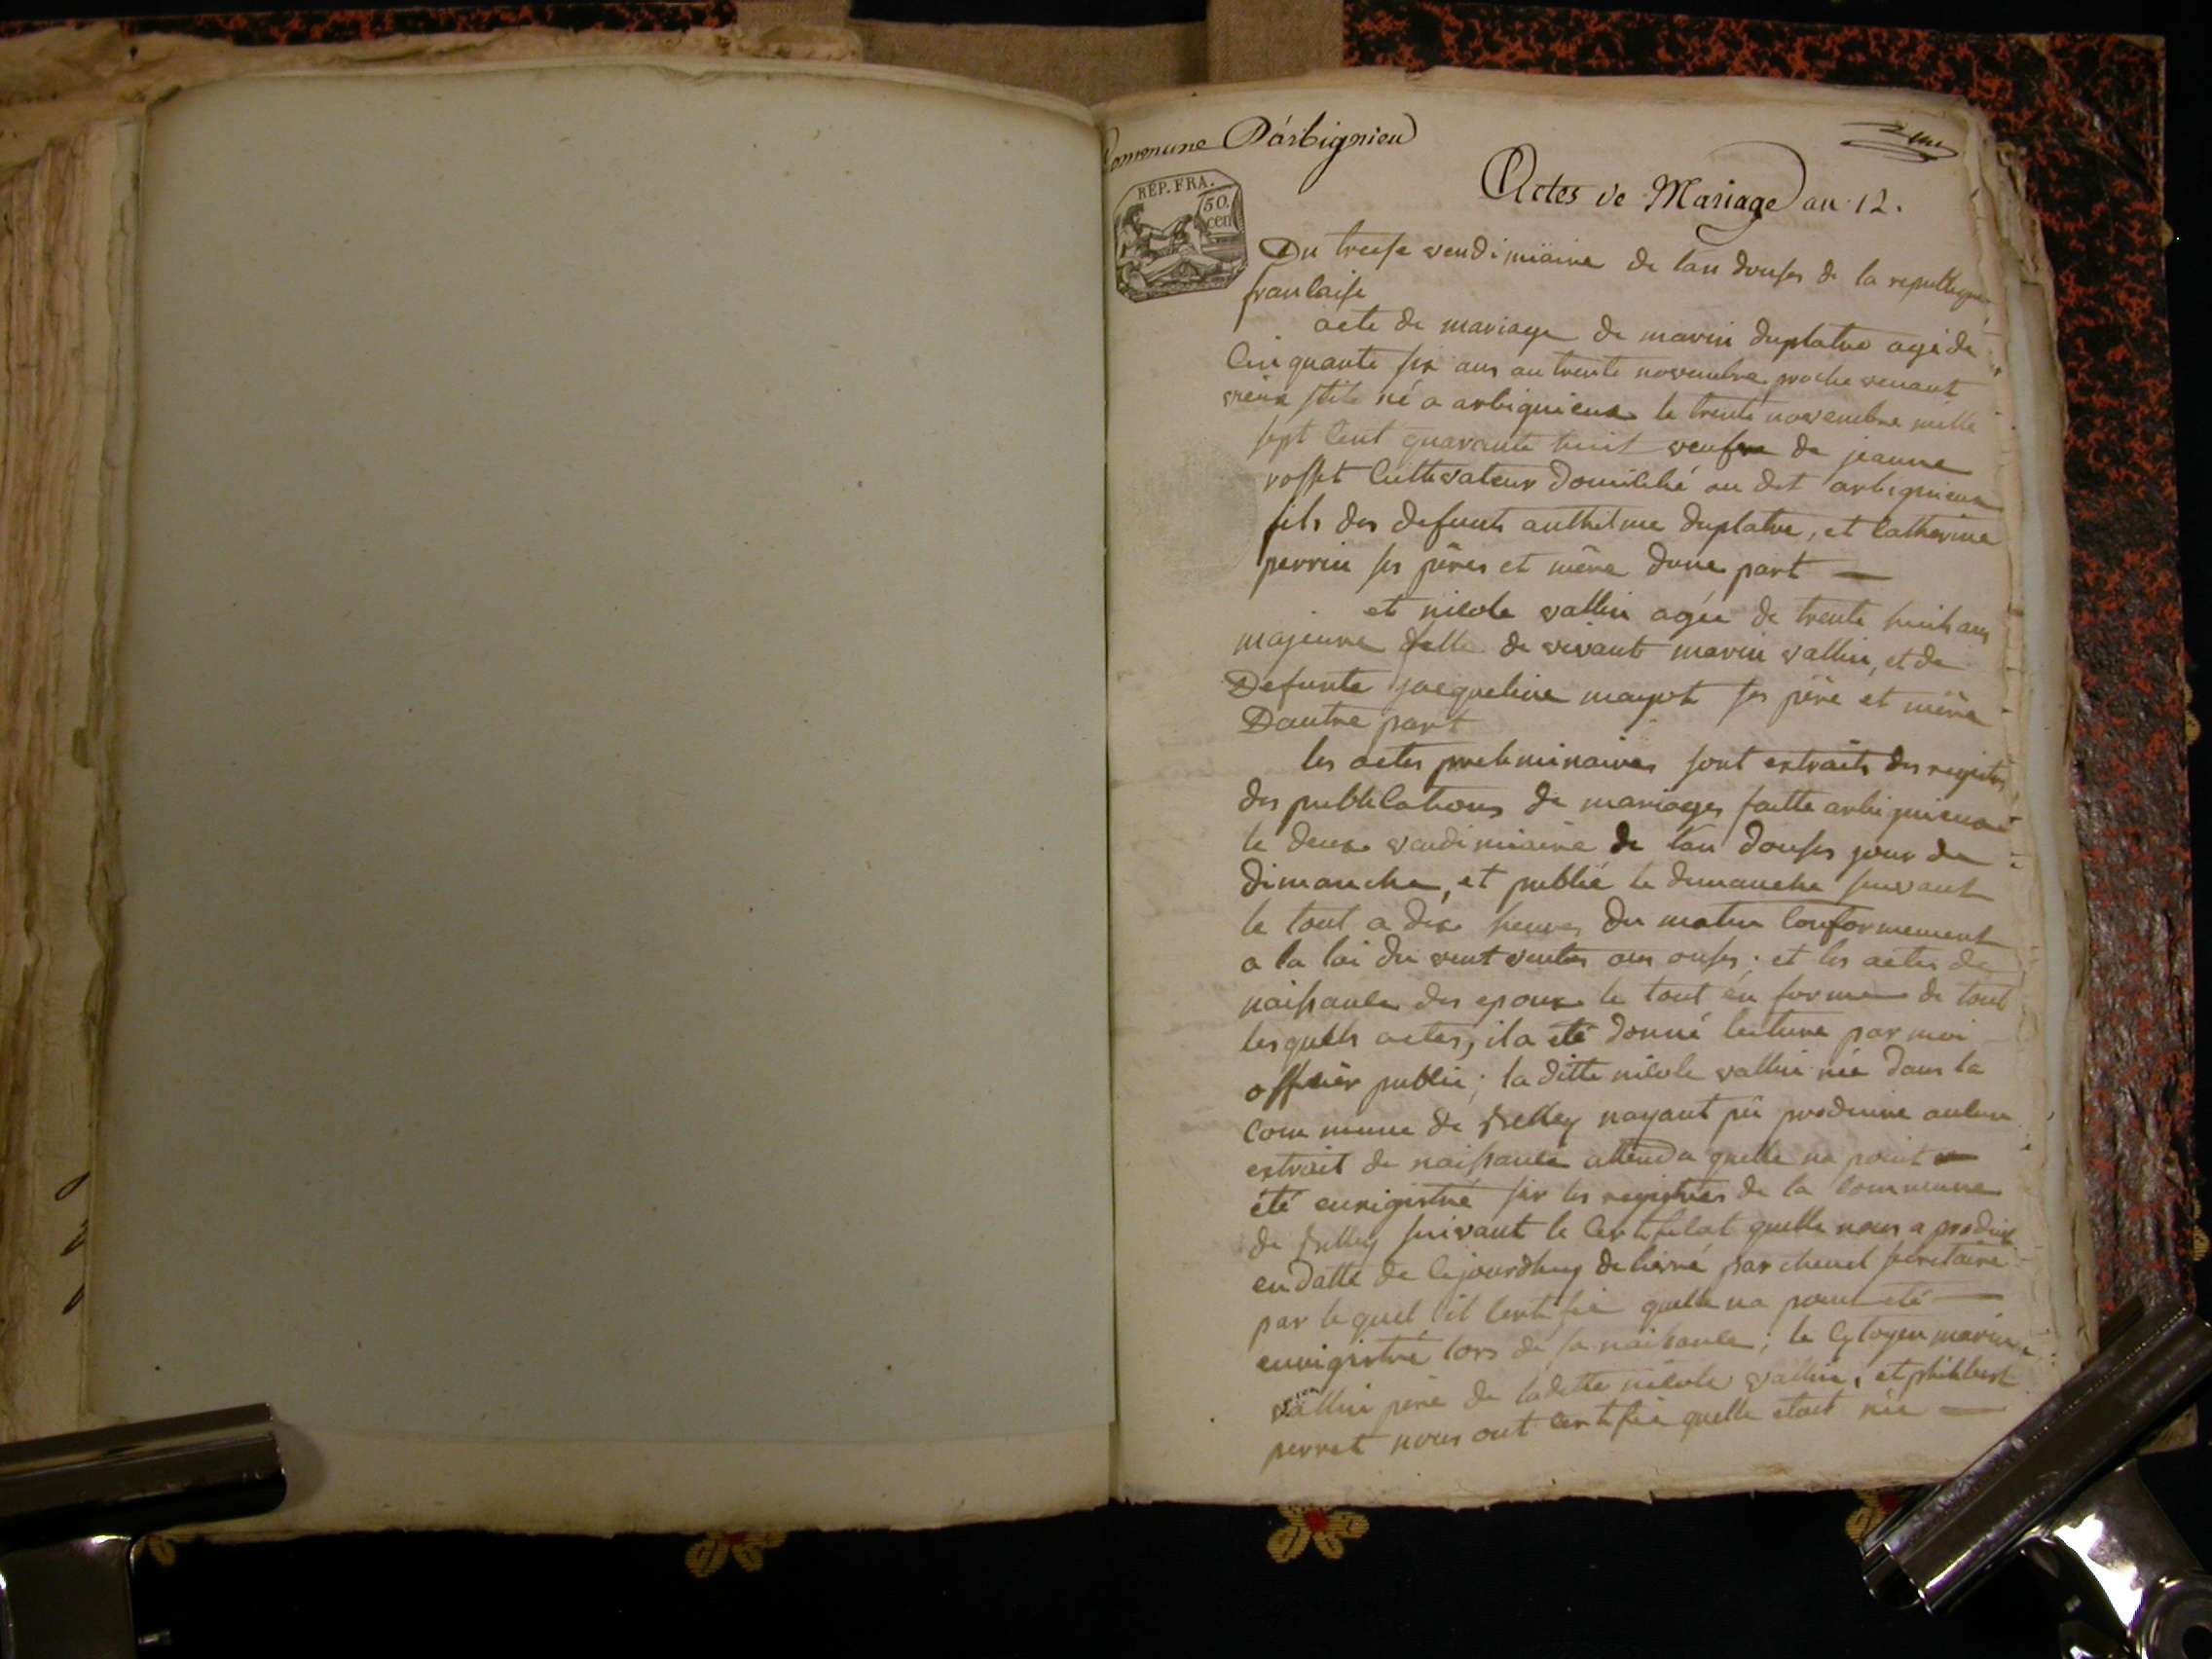 Commune Darbignieu
une
REP. FRA.
50.
cen
Actes de Mariage an 12.
Du treise vendimiaire de lan douses de la republique
francaise
acte de mariage de marin duplatre agé de
cinquante six ans au trente novembre proche venant
vieux stile né a arbignieux le trente novembre mille
sept cent quarante huit veufve de jeanne
rosset cultivateur domicilié au dit arbignieux
fils des defunts anthelme duplatre, et catherine
perrin ses pères et mère dune part
et nicole vallin agée de trente huit ans
majeure fille de vivant marin vallin, et de
Defunte jacqueline mayot ses père et mère
Dautre part
les actes preliminaires sont extraits des registres
des publications de mariages faitte arbignieux
le deux vendimiaire de lan douses jour de
dimanche, et publié le dimanche suivant
le tout a dix heures du matin conformement
a la loi du vent ventos ans onses; et les actes de
naissance des epoux le tout en forme de tout
lesquels actes, il a été donné lecture par moi
officier public; la ditte nicole vallin née dans la
commune de Belley nayant pu produire aucun
extrait de naissance attendu quelle na point
été enrigistré sur les registres de la commune
de Belley suivant le certificat quelle nous a produit
en datte de cejourdhuy delivré par chenel secretaire
par lequel il certifié quelle na point eté
enrigistré lors de sa naissance; le cytoyen marin
vallin père de laditte nicole vallin, et philibert
perret nous ont certifié quelle etait née